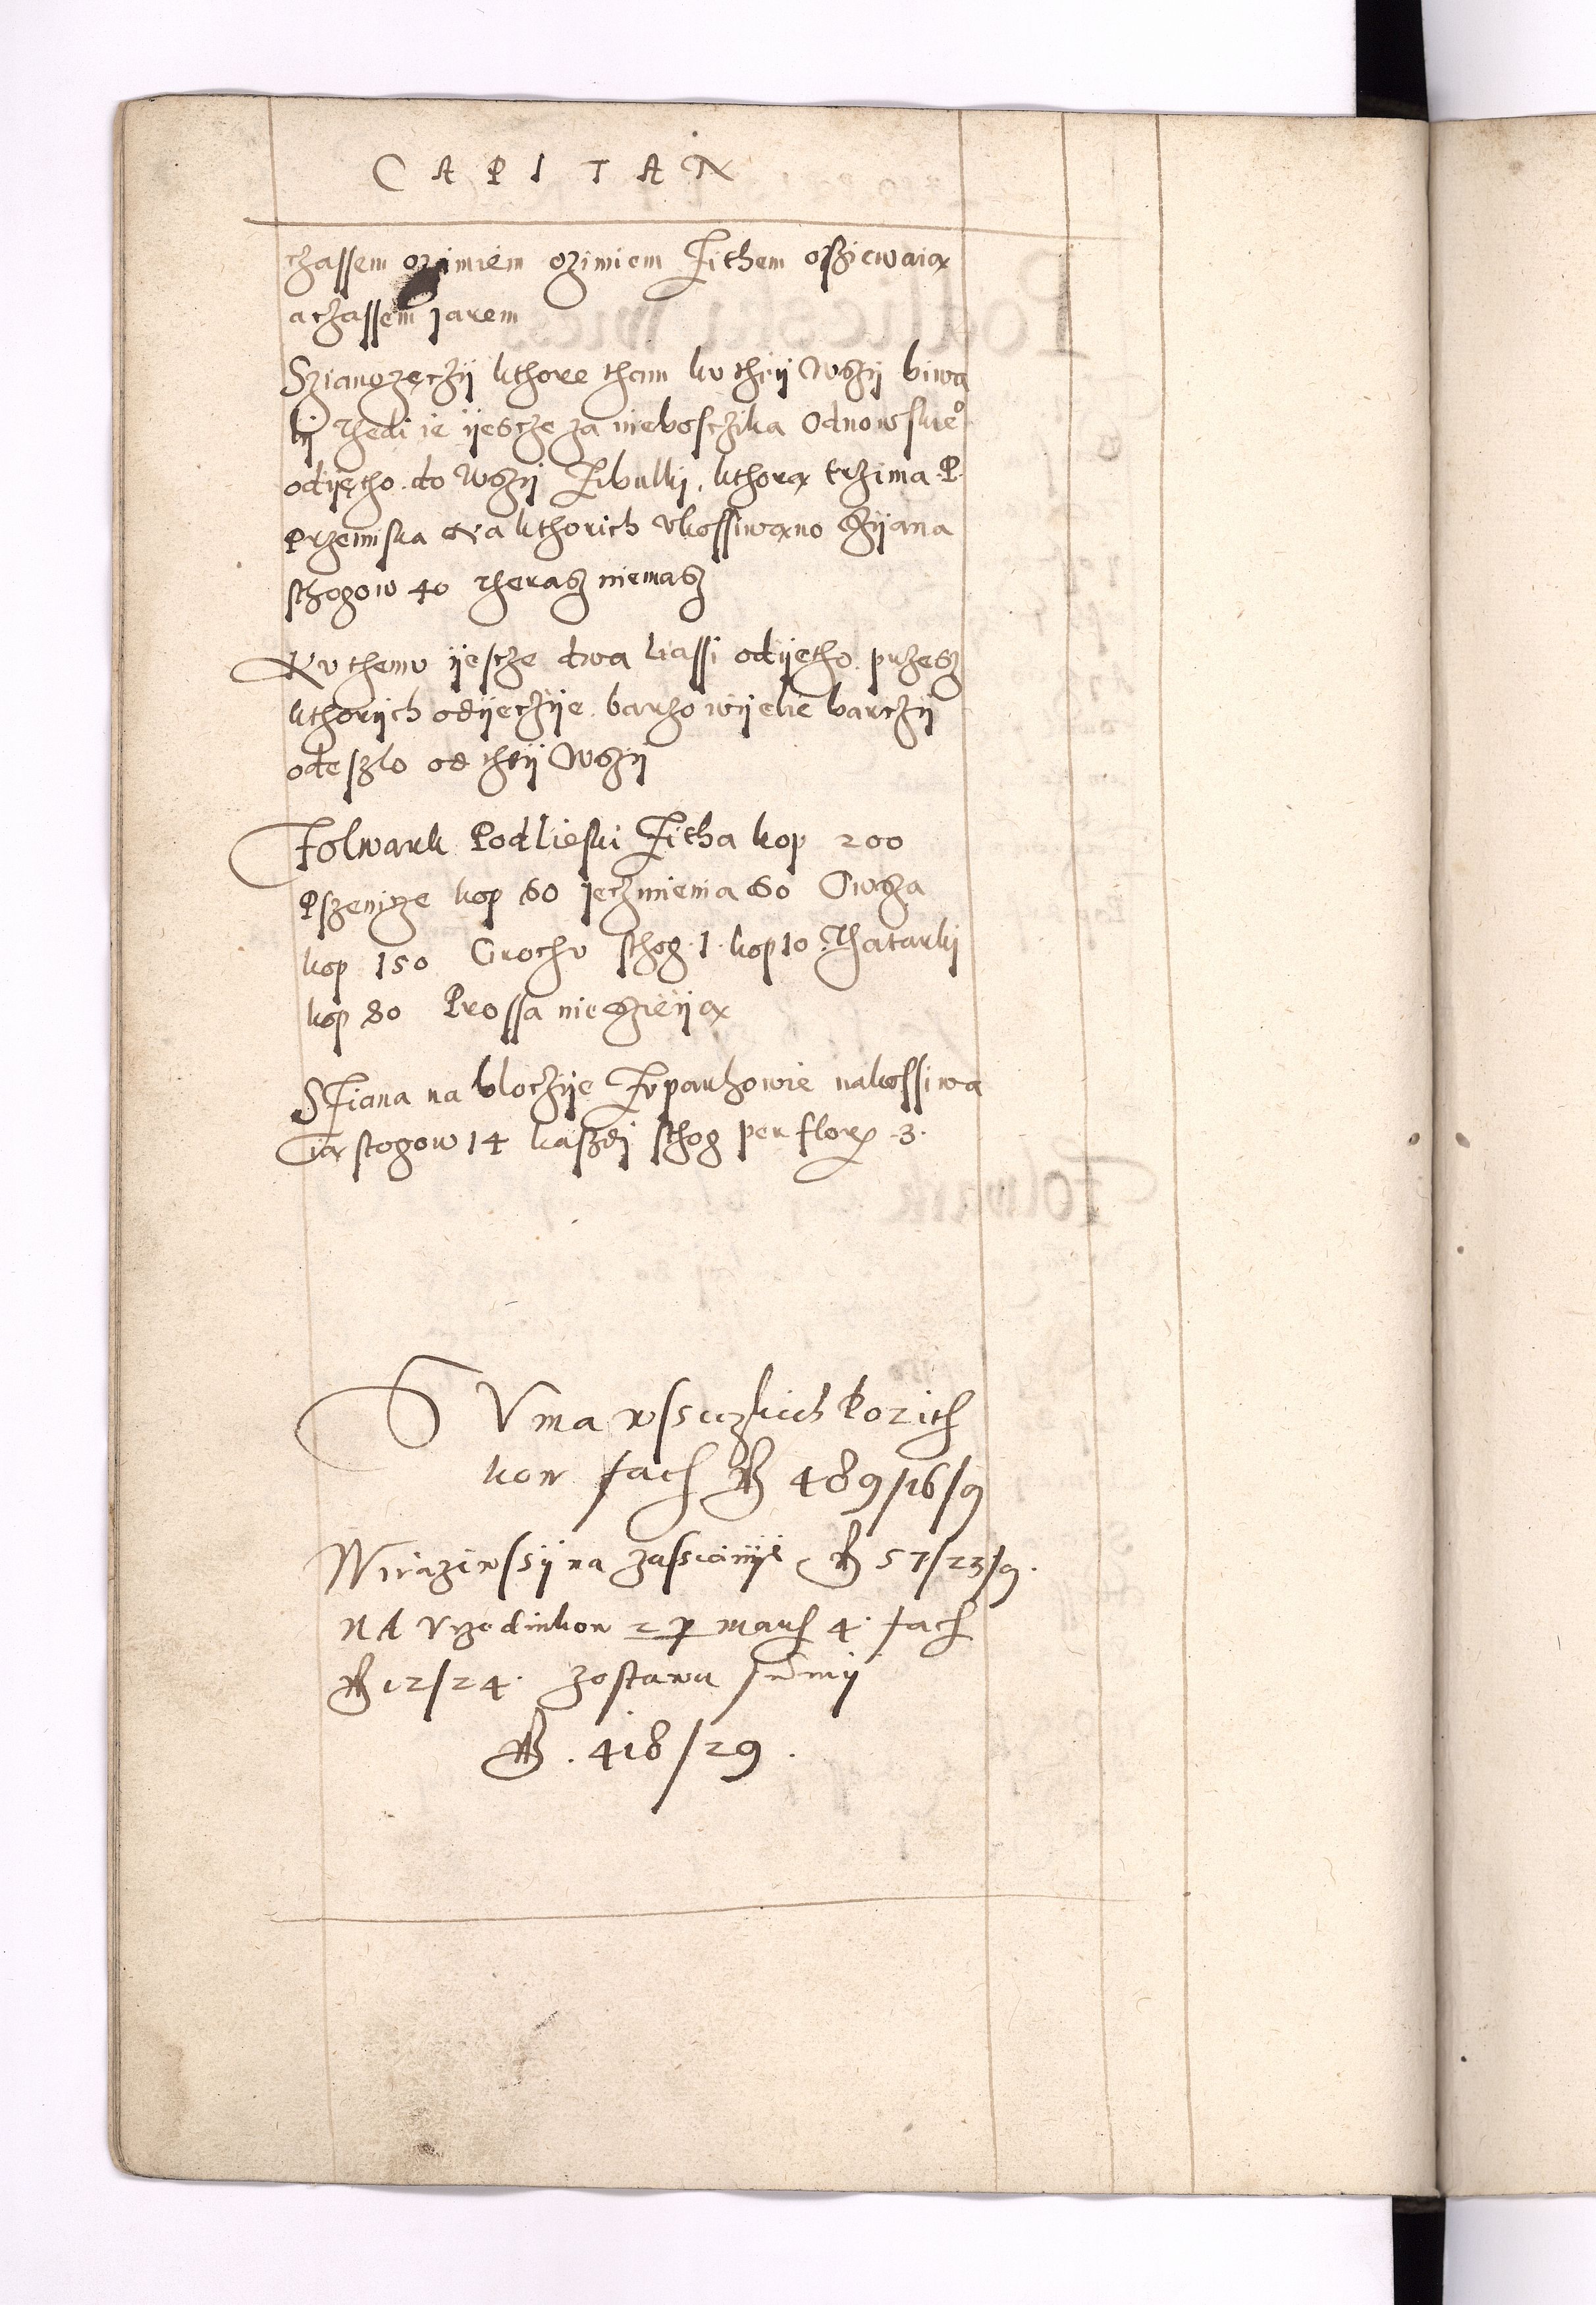 CAPITAN
czassem ozimiem ozimiem Zithem osziewaią
a czassem jarem
Szianozęczij kthore tham ku theij Wszij biwa
lij Thedi ie ijescze za nieboszcżika Odnowskieº
odijętho do Wszij Zibulkj, kthorą trzima P.
Przemiska Na kthorich vkossiwano szijana
sthogow 40 Therasz niemasz
Ku themu ijescże dwa liassi odijętho przesz
kthorijch odijęczije barzo wijelie barczij
odeszlo od theij Wszij
Folwark Podlieski Zitha kop 200
Pszenicze kop 60 jęczmienia 60 Owsza
kop 150 Grochu sthog 1. kop 10 Thatarkj
kop 80 Prossa nie szieiją
Sziana na blocżije Zuparzowie nakossiwa
ią stogow 14 kaszdj sthog per flor. 3.
SVma wssiczkich Pozith
kow facit fl 489/16/9
Wiiąziwssij na zassianije fl 57/23/9.
NA Vrzedinkow 2 per marc 4. facit
fl 12/24. zostawa summij
fl. 418/29.